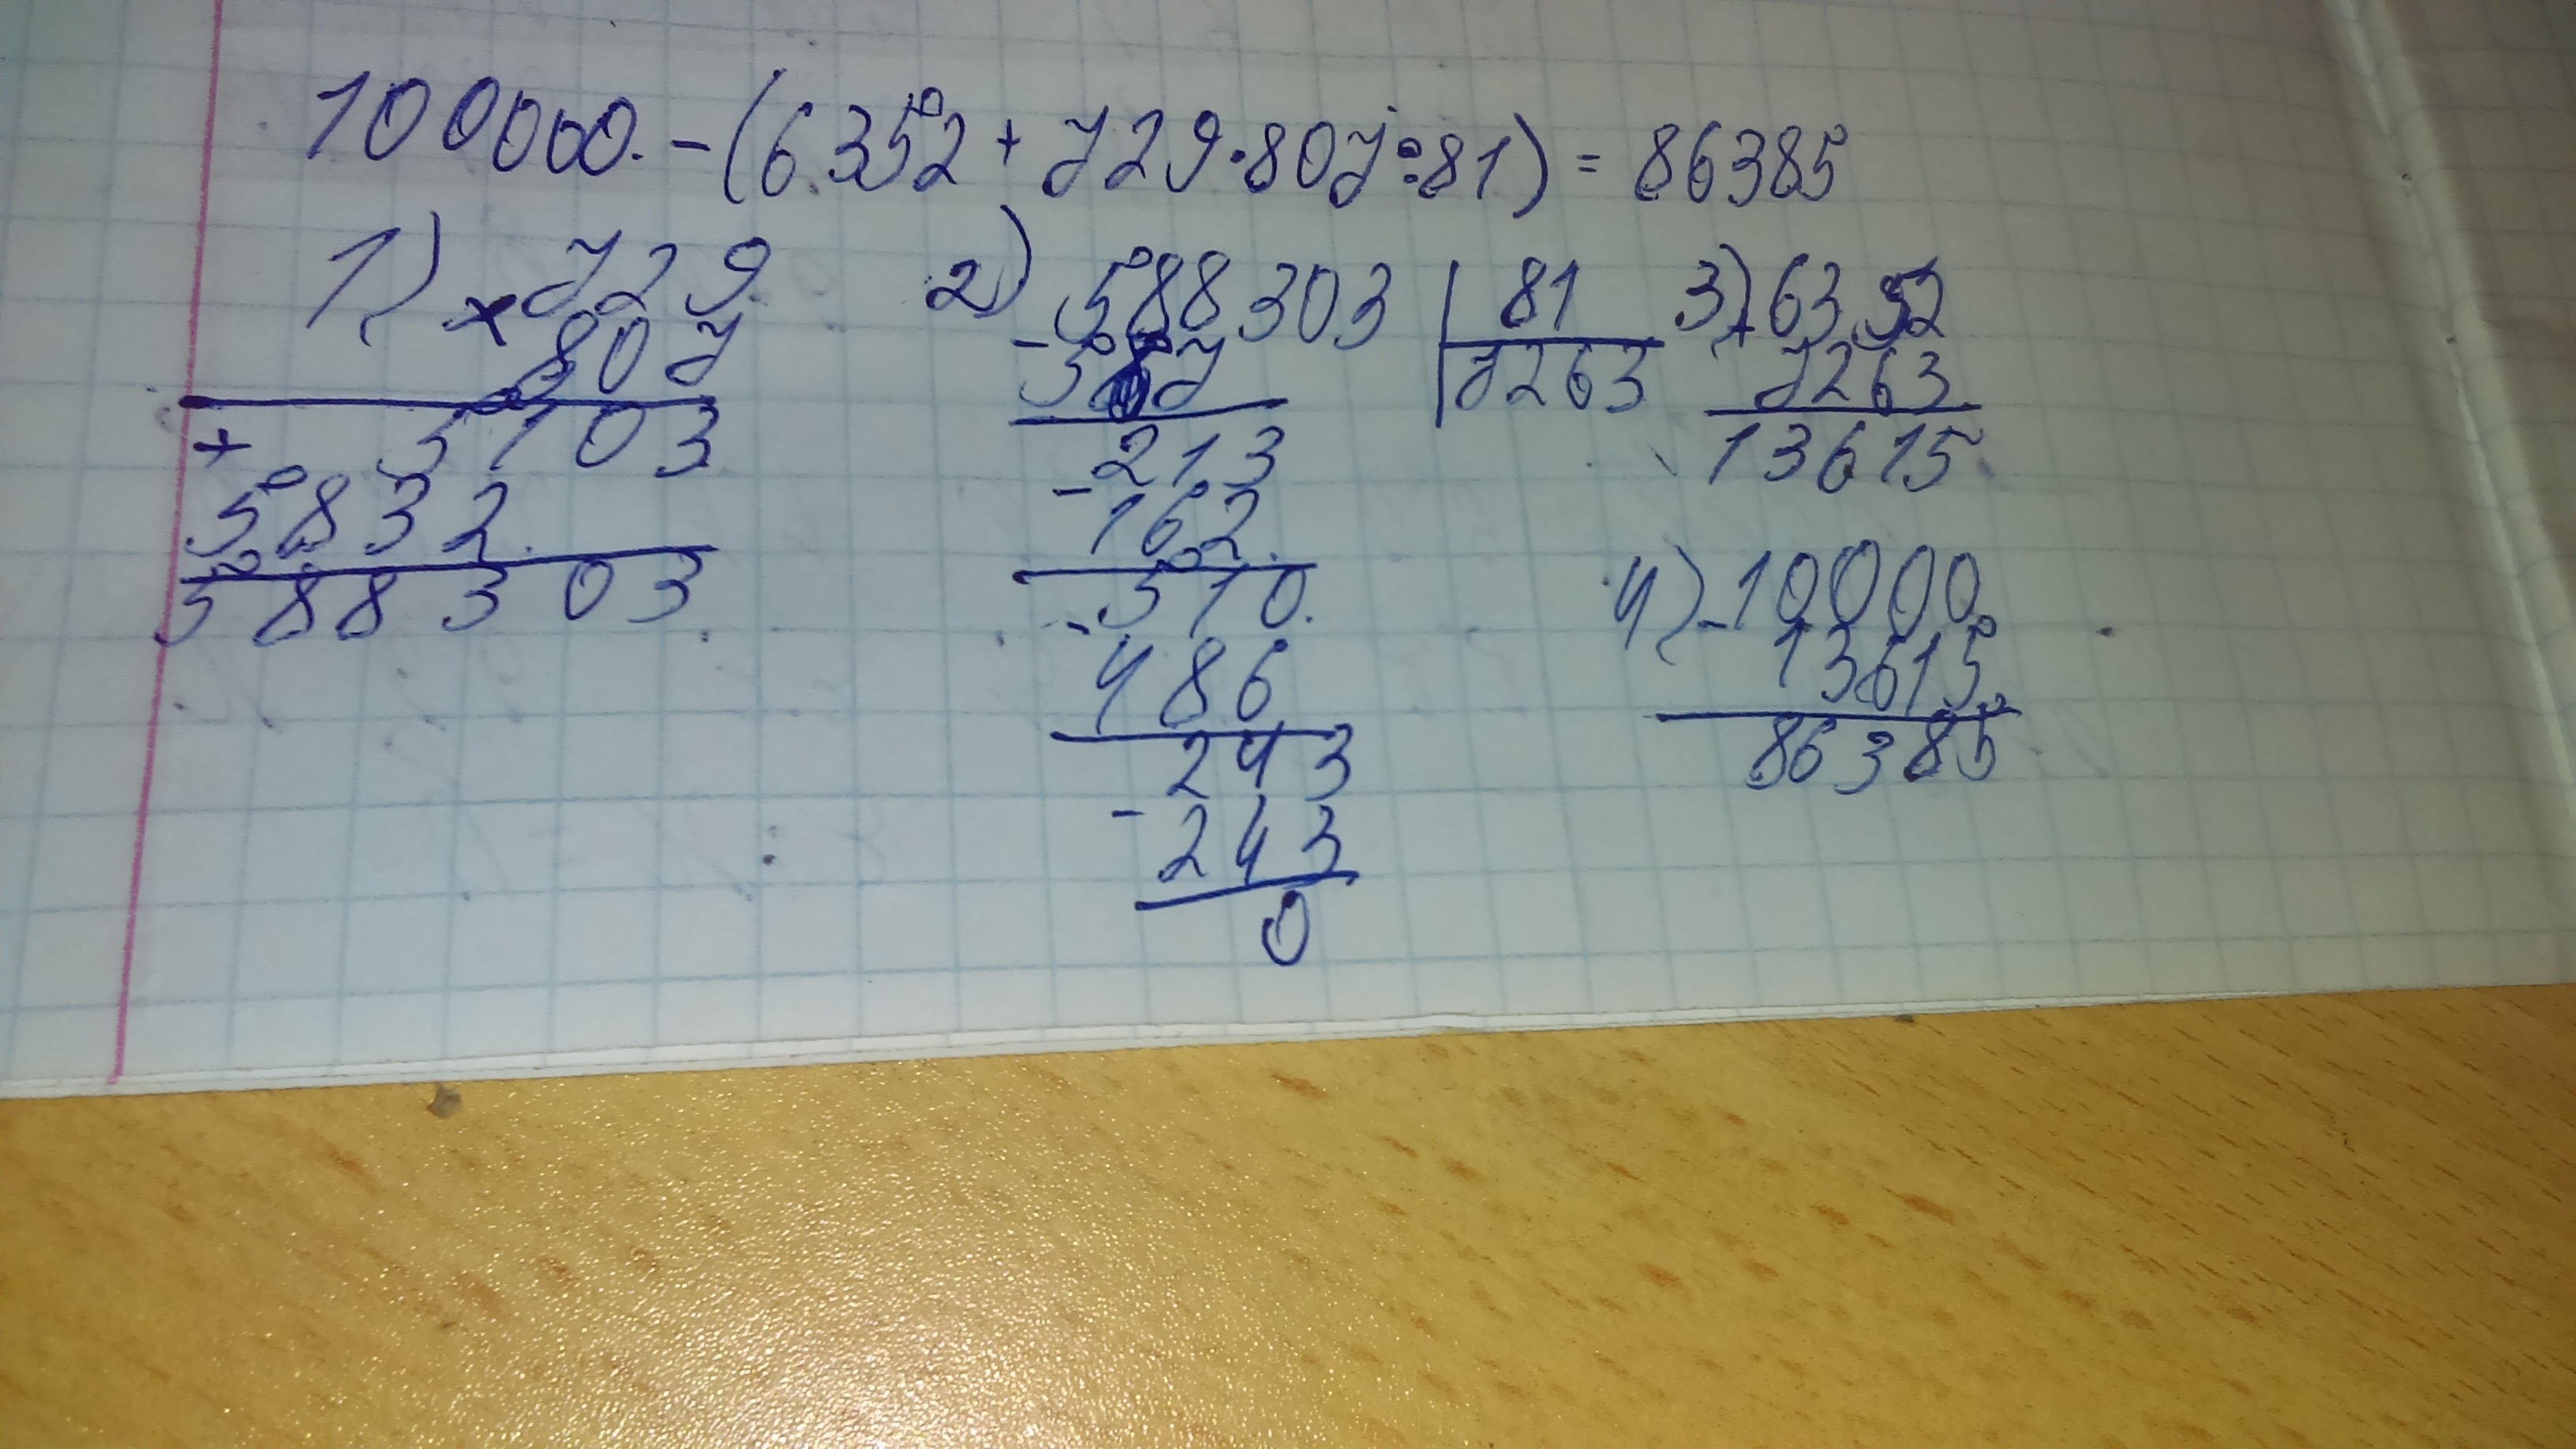 100000 - (6352 + 729·807:81) = 86385
1) × 729
807
+ 5103
5832
588303
2) - 588303 | 81
567 | 7263
- 213
162
- 510
486
243
- 243
0
3) + 6352
7263
13615
4) - 10000
13615
86385